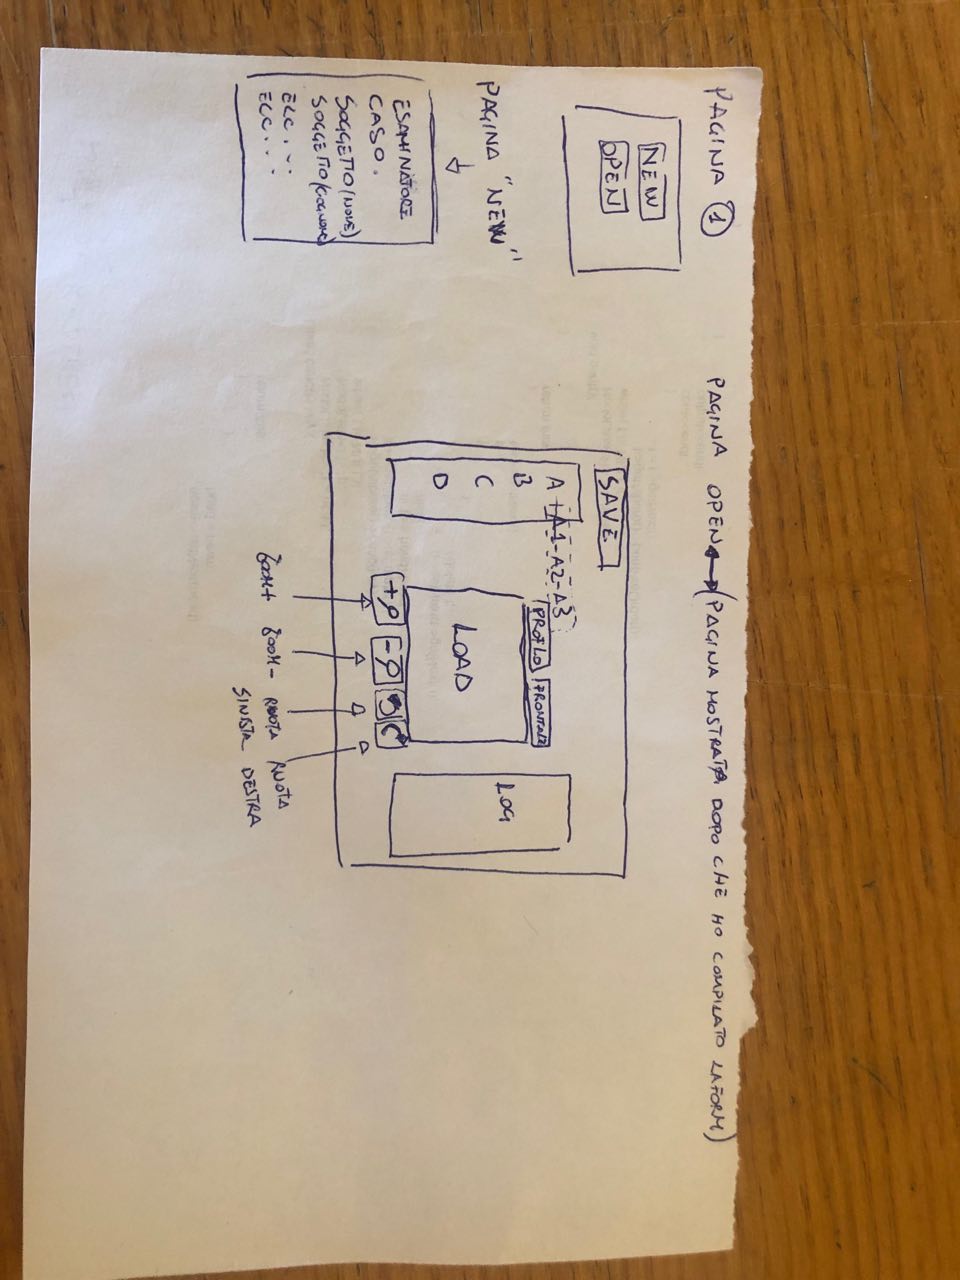 PAGINA 1
NEW
OPEN
PAGINA "NEW"
ESAMINATORE
CASO.
SOGGETTO (NOME)
SOGGETTO (COGNOME)
ECC...
ECC...
PAGINA OPEN (PAGINA MOSTRATA DOPO CHE HO COMPILATO LAFORM)
SAVE
A A1-A2-A3
B
C
D
PROFILO FRONTALE
LOAD
LOG
+ -
ZOOM+ ZOOM- RUOTA SINISTRA RUOTA DESTRA